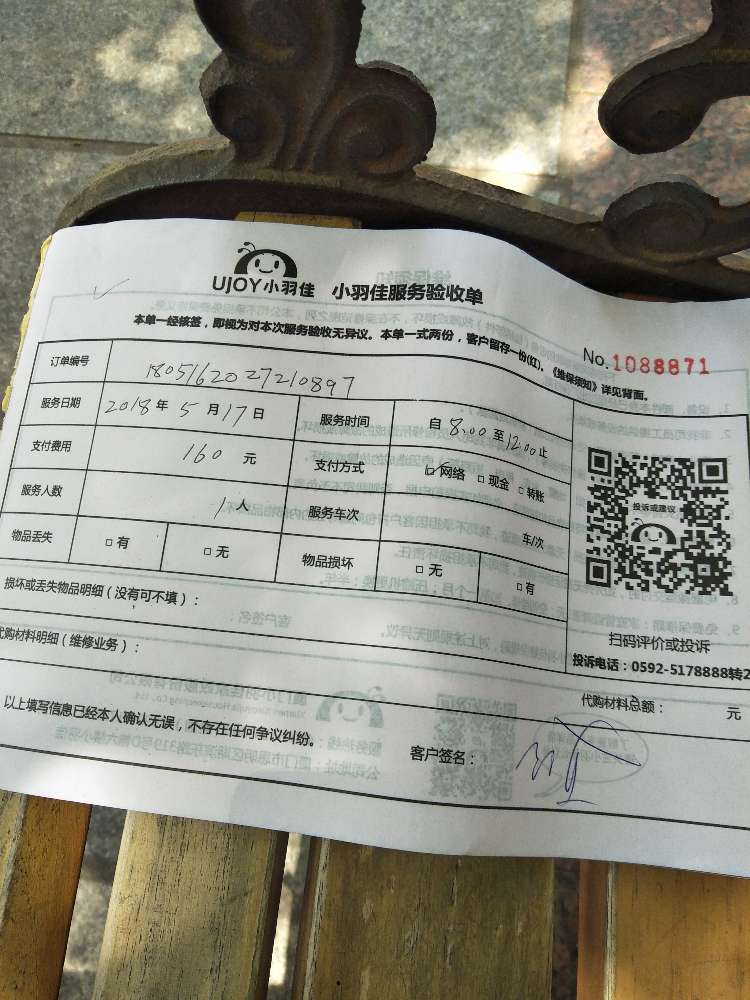 UJOY小羽佳 小羽佳服务验收单
本单一经核签，即视为对本次服务验收无异议。本单一式两份，客户留存一份(红)。《维保须知》详见背面。
No.1088871
订单编号 1805162027210897
服务日期 2018年5月17日 服务时间 自8:00至12:00止
支付费用 160元 支付方式 ☑网络 □现金 □转账
服务人数 1人 服务车次 车/次
物品丢失 □有 □无 物品损坏 □无 □有
投诉或建议
扫码评价或投诉
投诉电话：0592-5178888转2
损坏或丢失物品明细（没有可不填）：
代购材料明细（维修业务）：
代购材料总额： 元
以上填写信息已经本人确认无误，不存在任何争议纠纷。
客户签名：